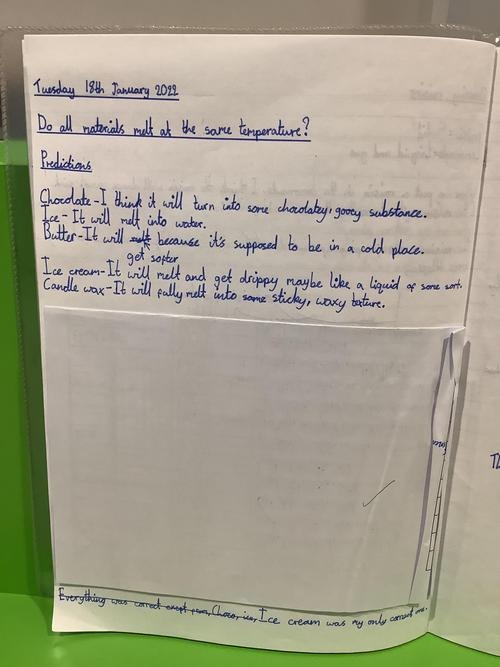 Tuesday 18th January 2022
Do all materials melt at the same temperature?
Predictions
Chocolate - I think it will turn into some chocolatey, gooey substance.
Ice - It will melt into water.
Butter - It will melt because it's supposed to be in a cold place.
get softer
Ice cream - It will melt and get drippy maybe like a liquid of some sort.
Candle wax - It will fully melt into some sticky, waxy texture.
Everything was correct except Choco, ice, Ice cream was my only correct one.